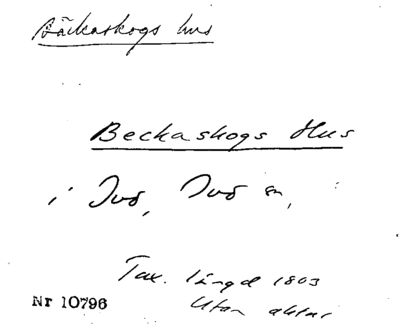 Bäckaskogs hus
Beckaskogs Hus
i Ivö, Ivö sn,
Tax. längd 1803
Nr 10796
Utan aktnr